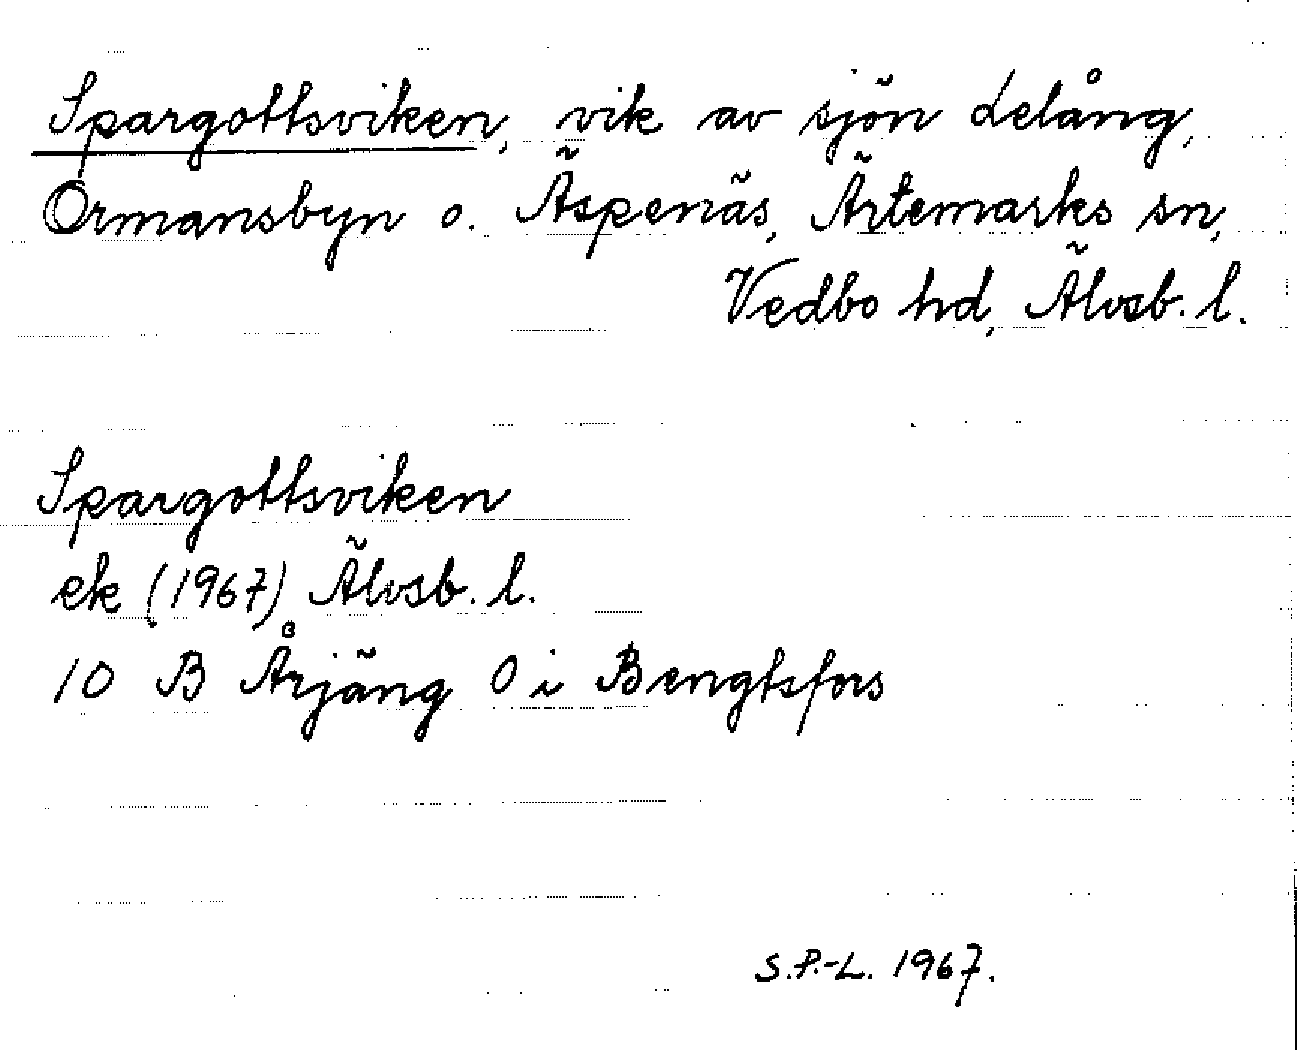 Spargottsviken, vik av sjön Lelång,
Ormansbyn o. Äspenäs, Ärtemarks sn,
Vedbo hd, Älvsb. l.
Spargottsviken
ek (1967) Älvsb. l.
10 B Årjäng 0 i Bengtsfors
S.P.-L. 1967.